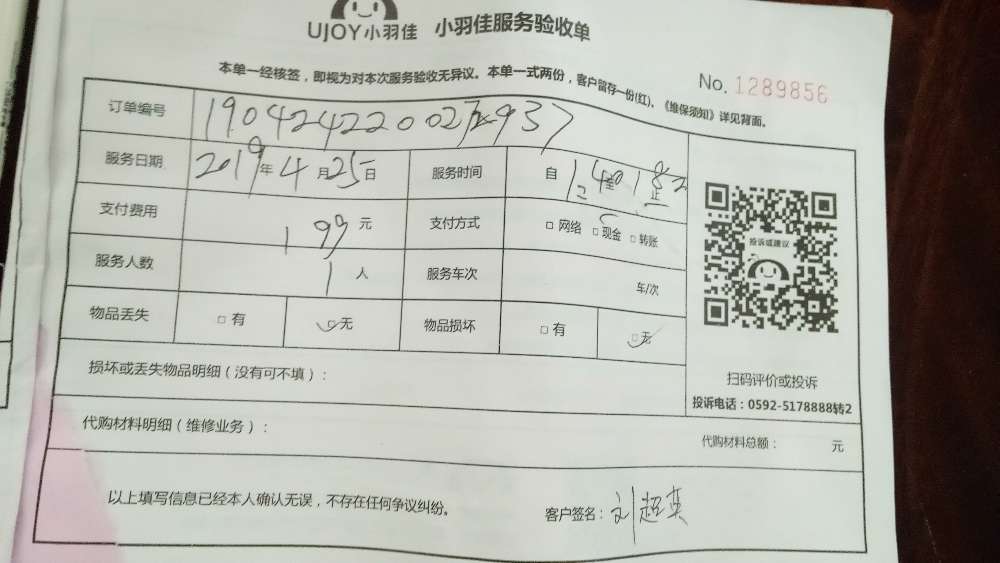 UJOY小羽佳 小羽佳服务验收单
本单一经核签，即视为对本次服务验收无异议。本单一式两份，客户留存一份(红)。《维保须知》详见背面。
No. 1289856
订单编号
服务日期 2019年4月25日 服务时间 自 至 止
支付费用 199元 支付方式 □网络 □现金 □转账
服务人数 1人 服务车次 车/次
物品丢失 □有 □无 物品损坏 □有 □无
损坏或丢失物品明细（没有可不填）：
代购材料明细（维修业务）： 代购材料总额： 元
以上填写信息已经本人确认无误，不存在任何争议纠纷。
客户签名：刘超英
投诉或建议
扫码评价或投诉
投诉电话：0592-5178888转2